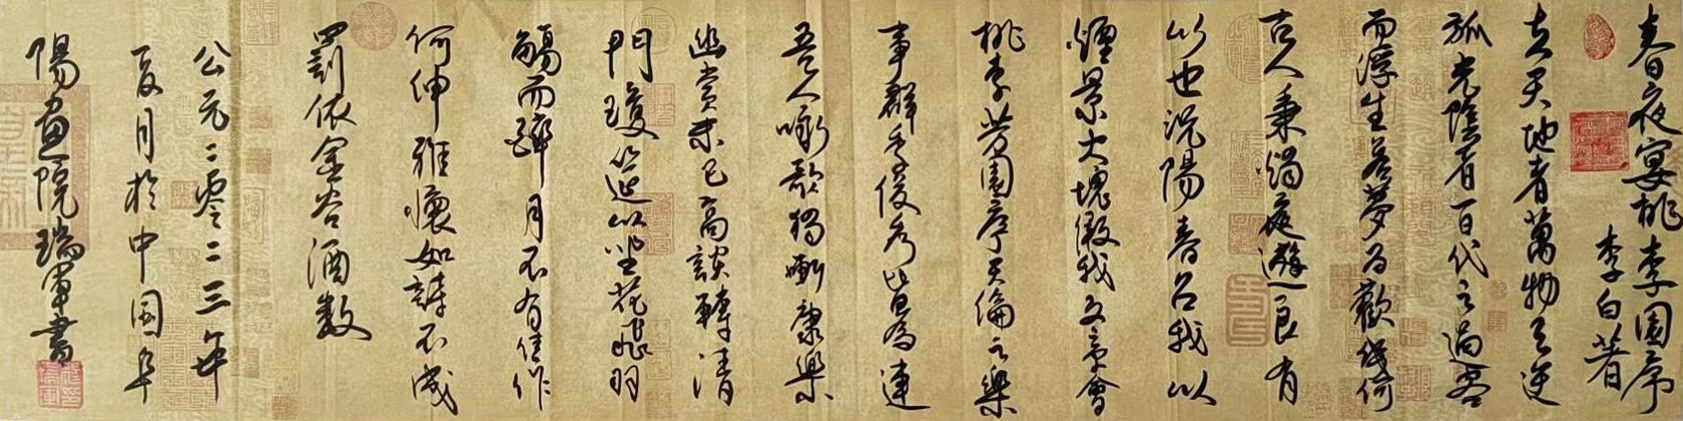 春夜宴桃李園序
李白著
夫天地者萬物之逆
旅光陰者百代之過客
而浮生若夢為歡幾何
古人秉燭夜遊良有
以也況陽春召我以
煙景大塊假我文章會
桃李芳園序天倫之樂
事群季俊秀皆為連
吾人詠歌獨慚康樂
幽賞未已高談轉清
開瓊筵以坐花飛羽
觴而醉月不有佳作
何伸雅懷如詩不成
罰依金谷酒数
公元二零二三年
夏月於中国阜
陽畫院瑞軍書